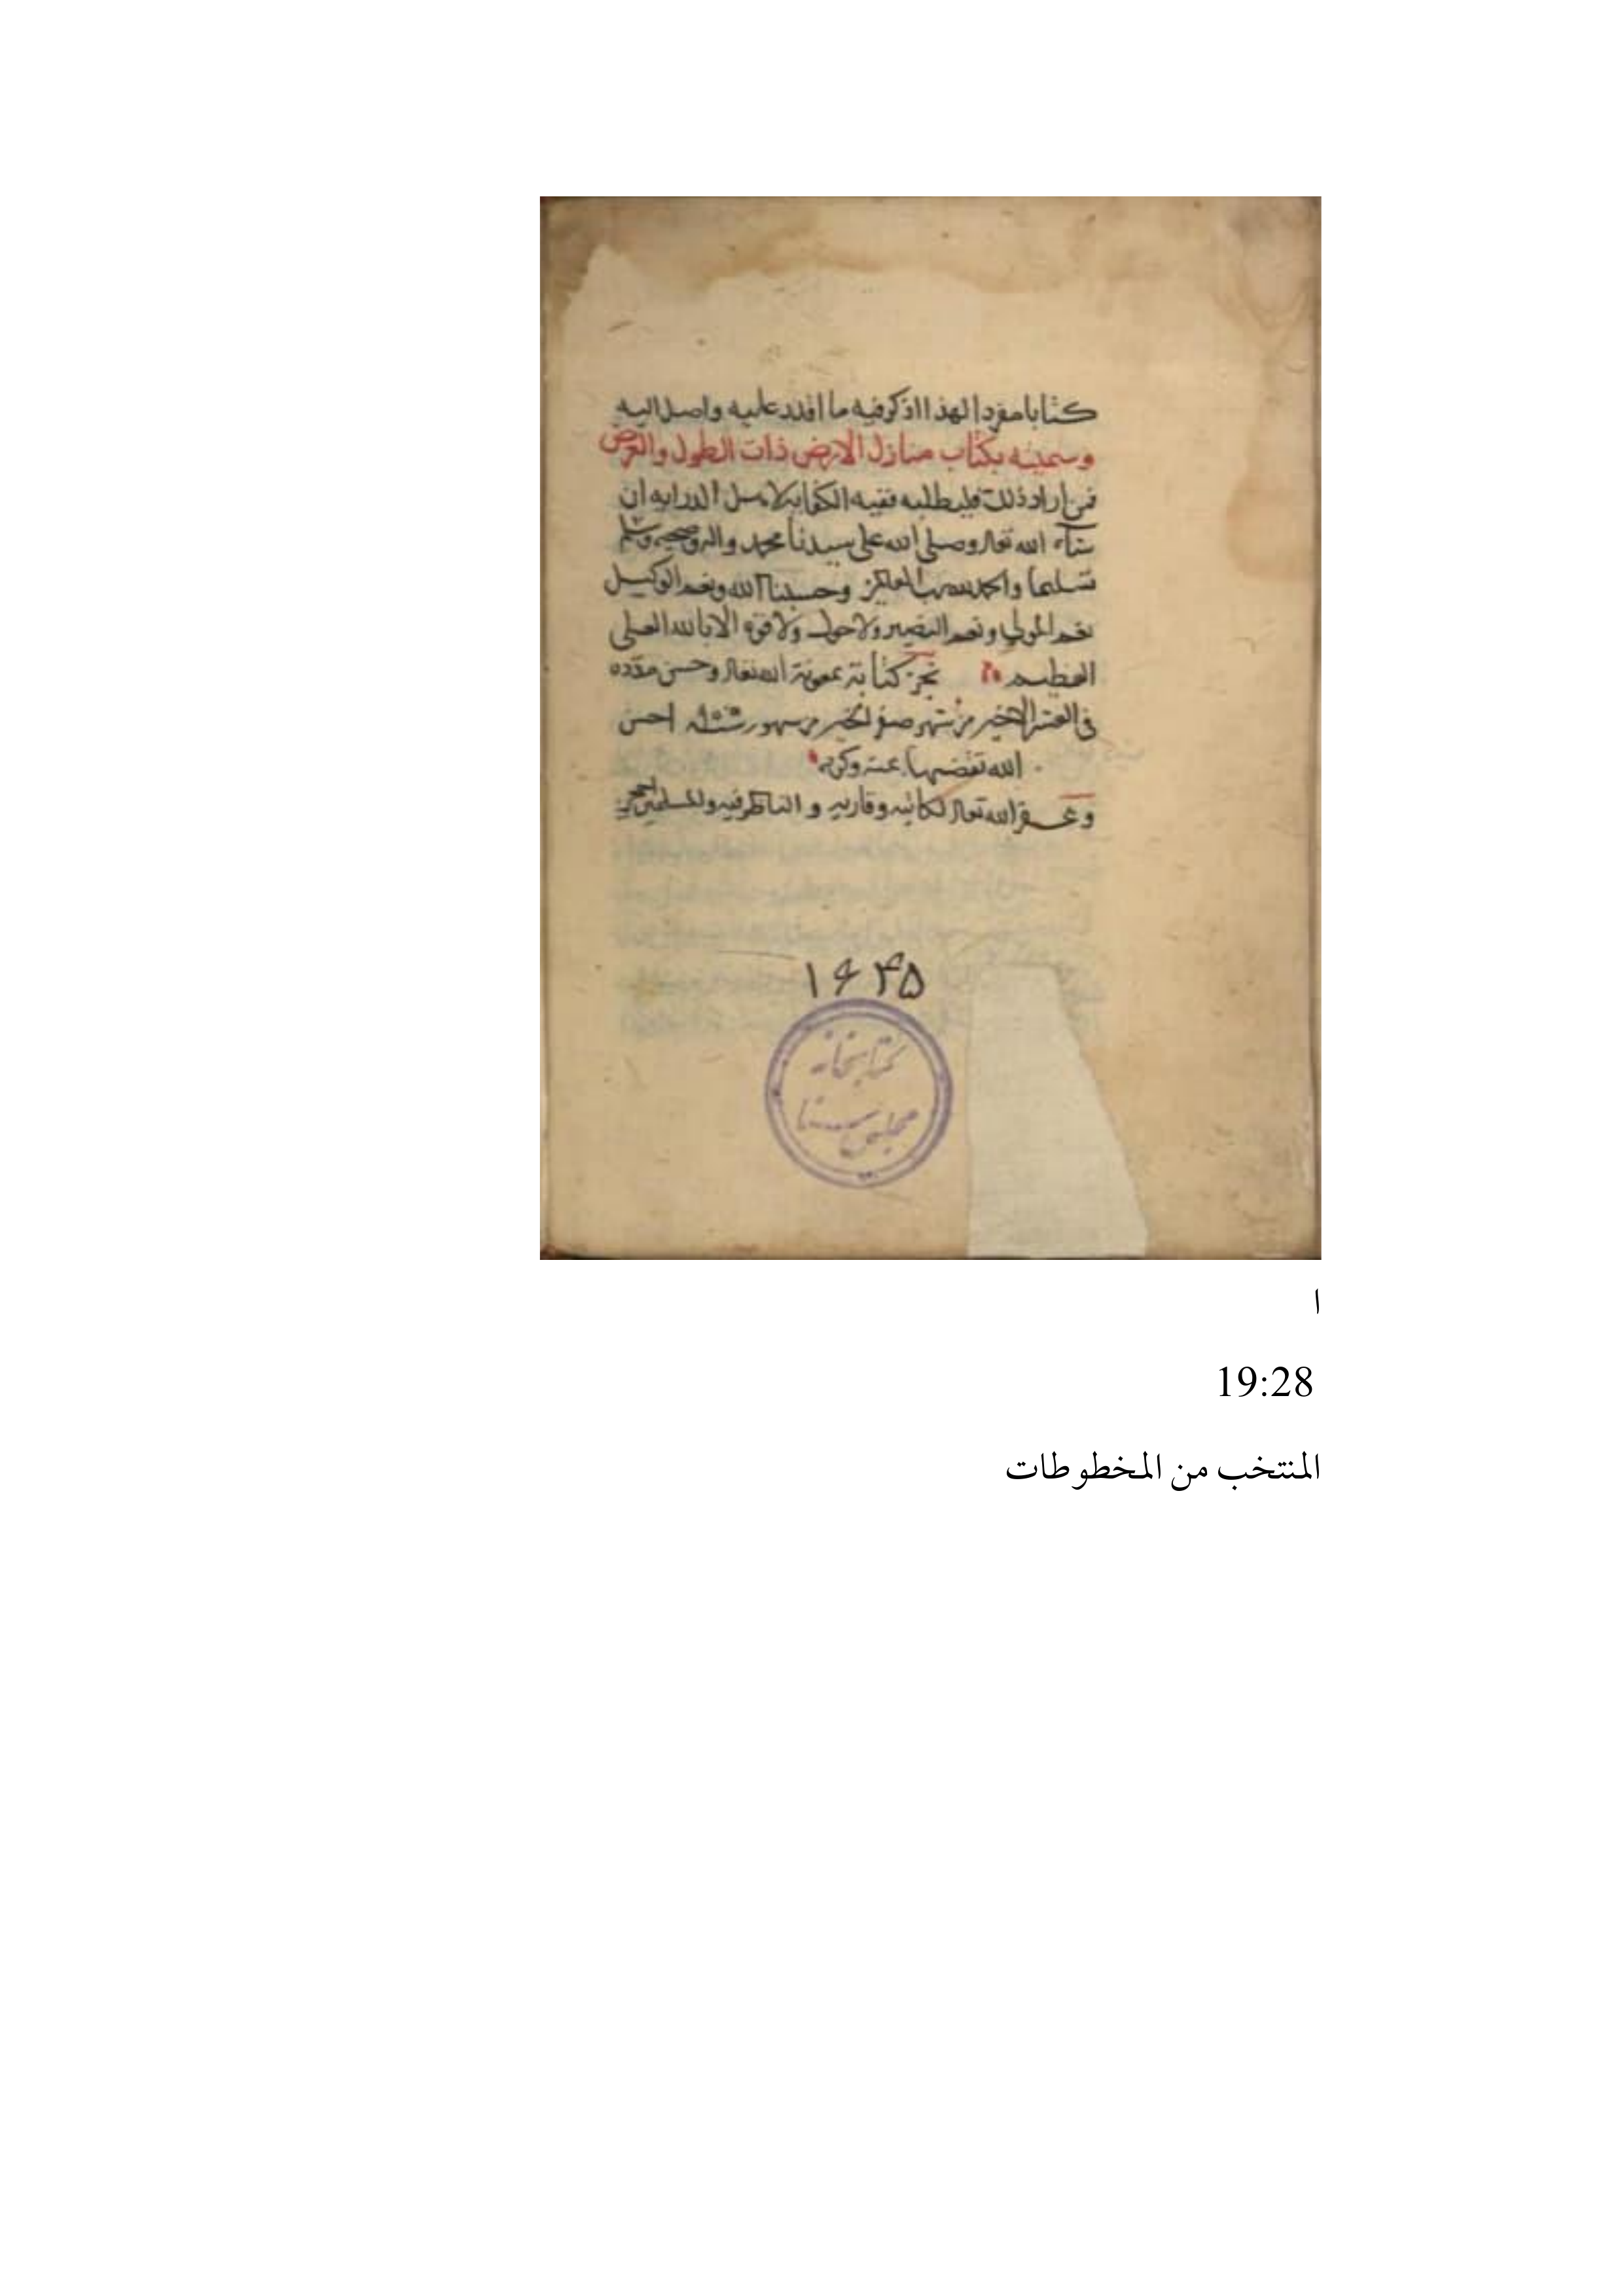 كتابا مفردا لهذا اذكر فيه ما اقدر عليه واصل اليه
وسميته بكتاب منازل الارض ذات الطول والعرض
فمن اراد ذلك فليطلبه ففيه الكفاية لاهل الدراية ان
شاء الله تعالى وصلى الله على سيدنا محمد واله وصحبه وسلم
تسليما والحمد لله رب العالمين وحسبنا الله ونعم الوكيل
نعم المولى ونعم النصير ولا حول ولا قوة الا بالله العلي
العظيم نجز كتابة بمعونة الله تعالى وحسن
في العشر الاخير من شهر صفر الخير من شهور احسن
الله تقضيها بمنه وكرمه
وغفر الله تعالى لكاتبه وقاريه والناظر فيه وللمسلمين اجمعين
۱۶۴۵
كتابخانه
مجلس سنا
ا
19:28
المنتخب من المخطوطات